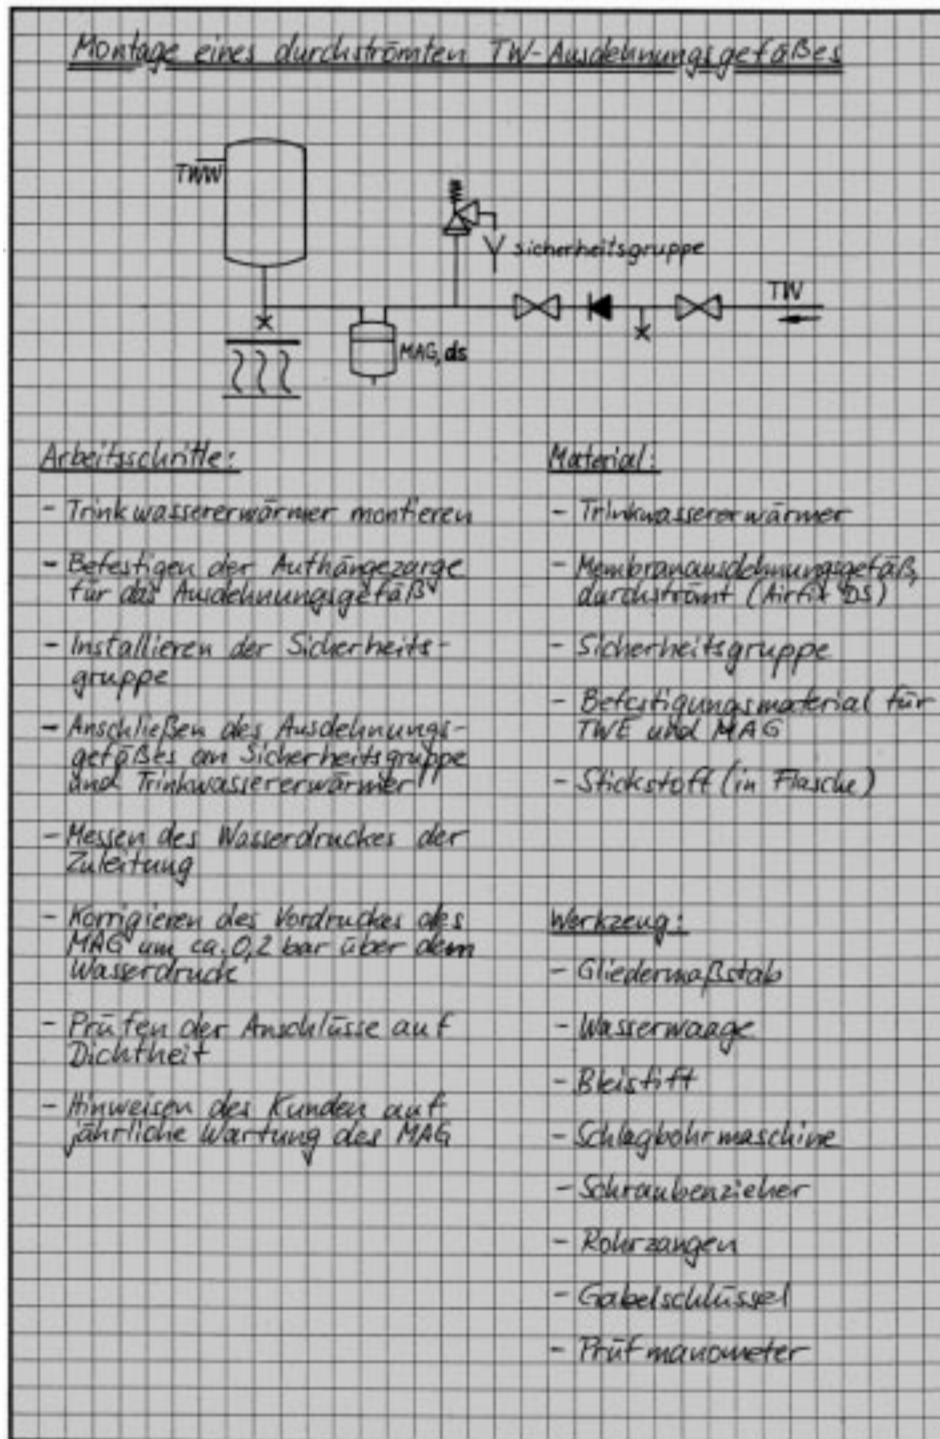 Montage eines durchströmten TW-Ausdehnungsgefäßes
TWW
Sicherheitsgruppe
TW
MAG, ds
Arbeitsschritte:
- Trinkwassererwärmer montieren
- Befestigen der Aufhängezarge
für das Ausdehnungsgefäß
- Installieren der Sicherheits-
gruppe
- Anschließen des Ausdehnungs-
gefäßes an Sicherheitsgruppe
und Trinkwassererwärmer
- Messen des Wasserdruckes der
Zuleitung
- Korrigieren des Vordruckes des
MAG um ca. 0,2 bar über dem
Wasserdruck
- Prüfen der Anschlüsse auf
Dichtheit
- Hinweisen des Kunden auf
jährliche Wartung des MAG
Material:
- Trinkwassererwärmer
- Membranausdehnungsgefäß,
durchströmt (Airfix DS)
- Sicherheitsgruppe
- Befestigungsmaterial für
TWE und MAG
- Stickstoff (in Flasche)
Werkzeug:
- Gliedermaßstab
- Wasserwaage
- Bleistift
- Schlagbohrmaschine
- Schraubenzieher
- Rohrzangen
- Gabelschlüssel
- Prüfmanometer